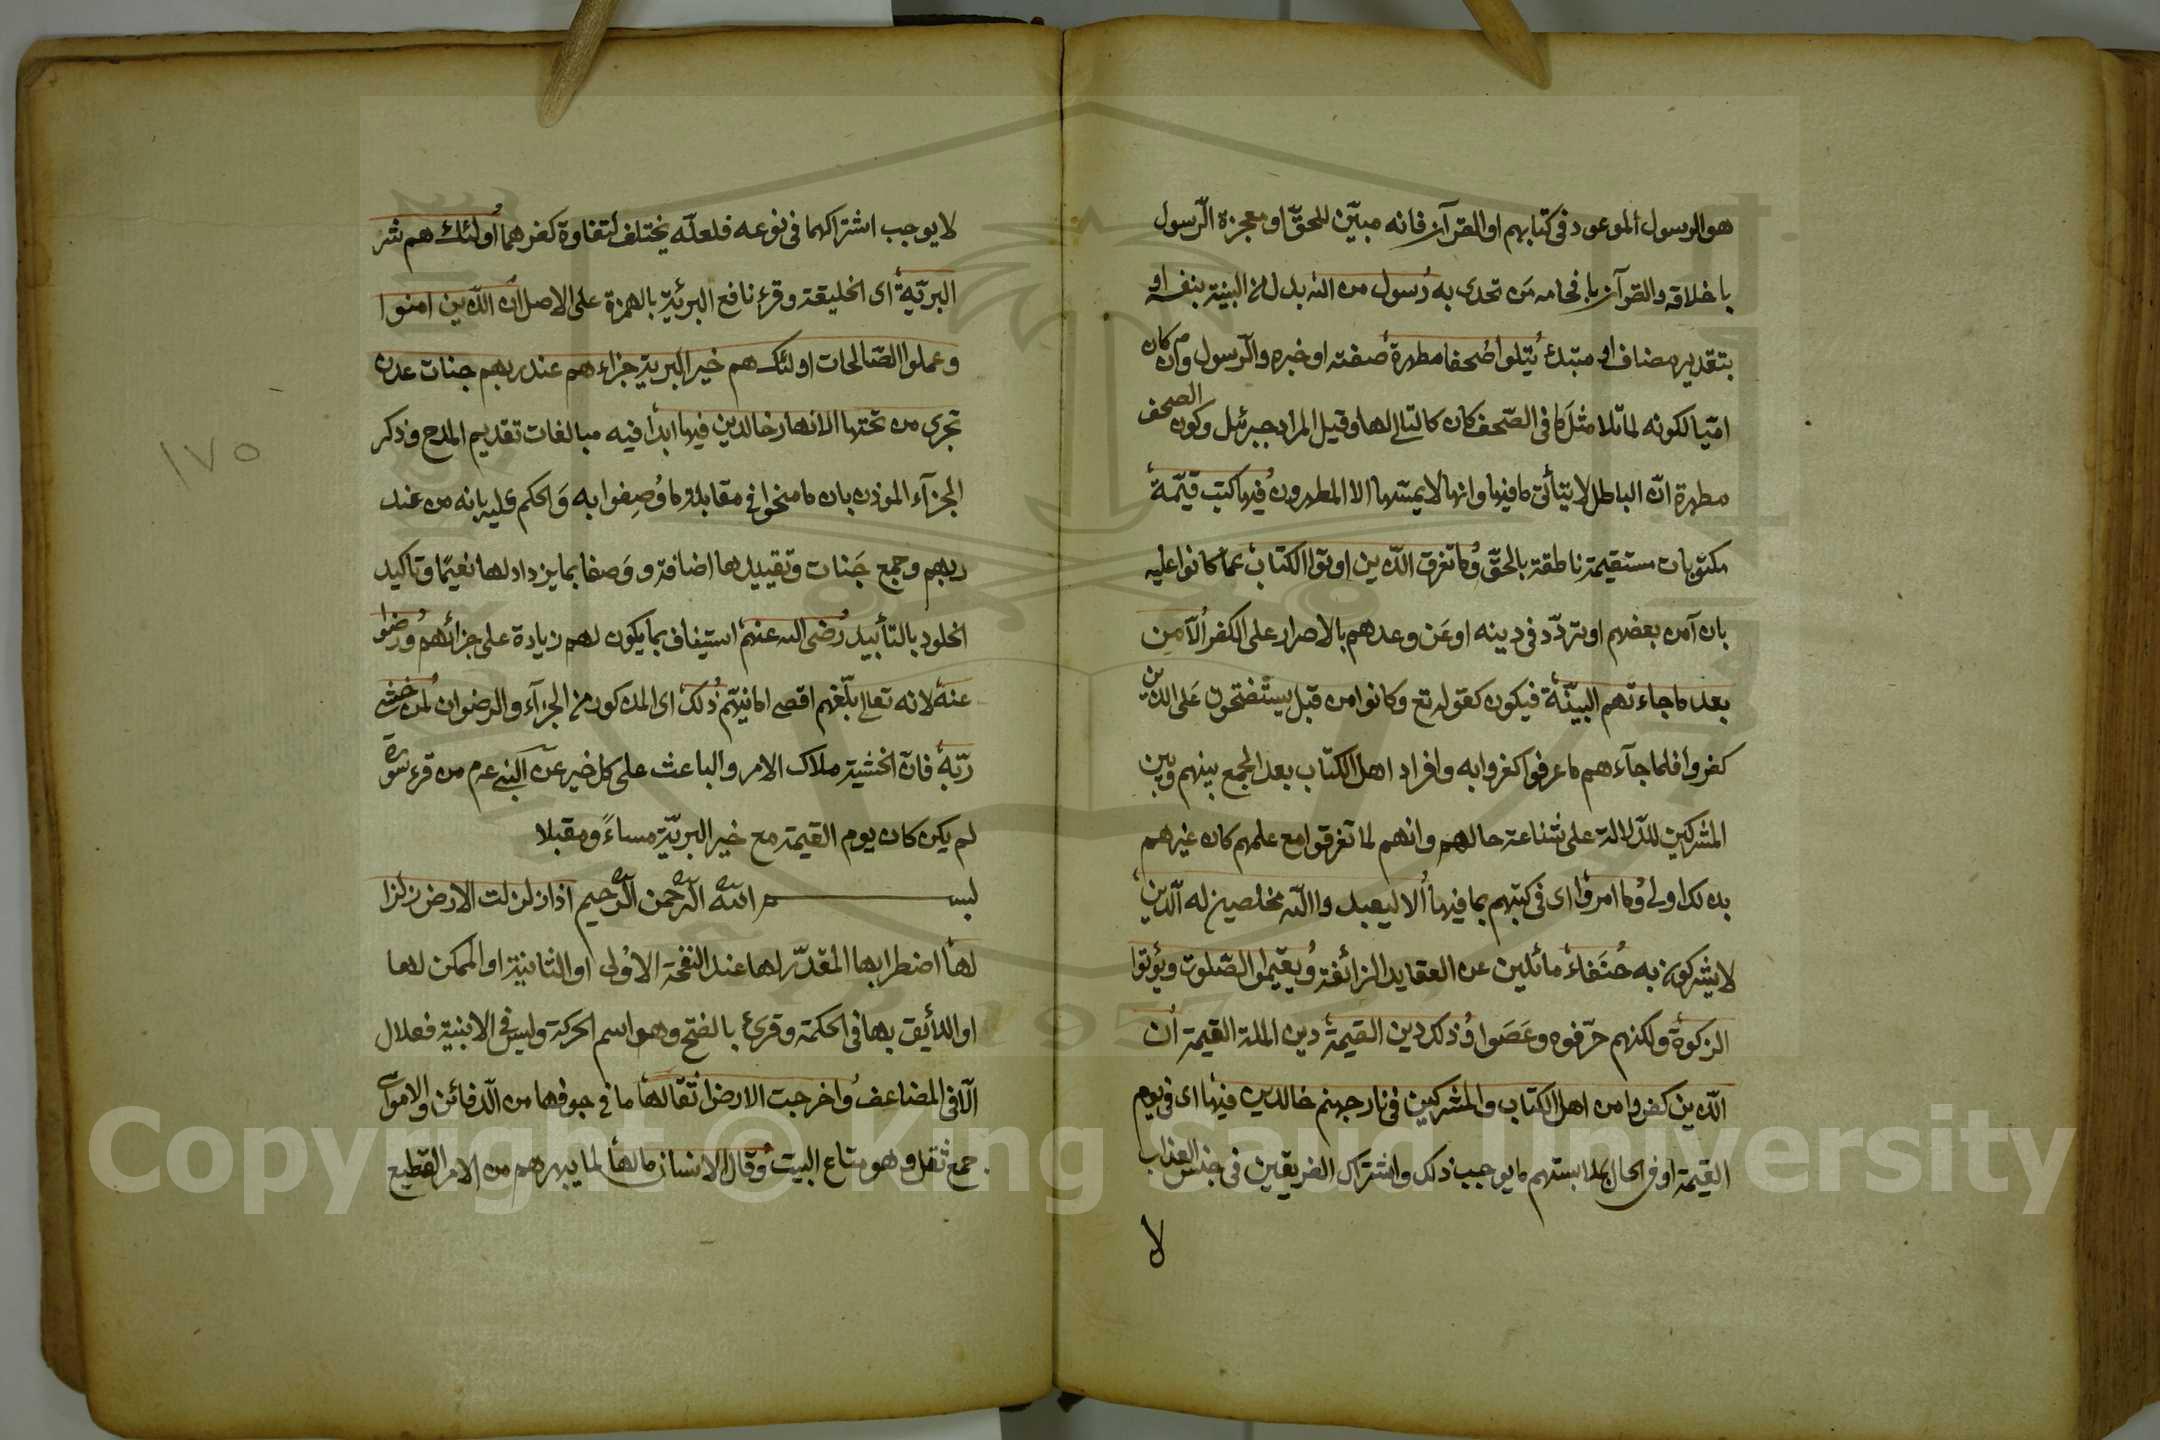 هو الرسول الموعود في كتابهم او القرآن فانه مبيّن للحقّ او معجزة الرّسول
باخلاقه والقرآن بافحامه مَن تحدى به رسول من الله بدل من البينة بنفسه او
بتقدير مضاف او مبتدئ يتلوا صحفا مطهرة صفته او خبره والرّسول وان كان
اميّا لكونه لمّا تلا مثل ما في الصّحف كان كالتالي لها وقيل المراد جبرئيل وكون الصحف
مطهرة انّ الباطل لا يتأتى ما فيها وانها لا يمسّها الا المطهرون فيها كتب قيّمة
مكتوبات مستقيمة ناطقة بالحقّ وما تفرق الّذين اوتوا الكتاب عما كانوا عليه
بان آمن بعضهم او تردّد في دينه او عَن وعدهم بالاصرار على الكفر الّا من
بعد ما جاءتهم البيّنة فيكون كقوله تع وكانوا من قبل يستفتحون عَلى الذين
كفروا فلما جآءهم ما عرفوا كفروا به وافراد اهل الكتاب بعد الجمع بينهم وبين
المشركين للدّلالة على شناعة حالهم وانهم لما تفرقوا مع علمهم كان غيرهم
بذلك اولى وما امروا اى في كتبهم بما فيها الا ليعبدوا الله مخلصين له الّدين
لا يشركون به حُنَفاء مائلين عن العقايد الزائغة ويقيموا الصّلوت ويؤتوا
الزكوة ولكنهم حرّفوه وعَصَوا وذلك دين القيمة دين الملة القيمة ان
الّذين كفروا من اهل الكتاب والمشركين في نار جهنم خالدين فيها اى في يوم
القيمة او في الحال لملابستهم ما يوجب ذلك واشتراك الفريقين في جنس العذاب
لا
لا يوجب اشتراكهما في نوعه فلعلّه يختلف لتفاوة كفرهما اولئك هم شر
البريّة اى الخليقة وقرء نافع البريئة بالهمزة على الاصل ان الّذين امنوا
وعملوا الصّالحات اولئك هم خير البرية جزاءهم عند ربهم جنات عدن
تجرى من تحتها الانهار خالدين فيها ابدا فيه مبالغات تقديم المدح وذكر
الجزآء الموذن بان ما منحوا في مقابلة ما وُصِفوا به وَالحكم عليه بانه من عند
ربهم وجمع جَنات وتقييدها اضافة ووَصفا بما يزداد لها نعيمًا وتاكيد
الخلود بالتأبيد رضى الله عنهم استيناف بما يكون لهم زيادة على جزائهم ورضوا
عنه لانه تعالى بلّغهم اقصى امانيّهم ذلك اى المذكور من الجزآء والرضوان لمن خشى
ربّه فانّ الخشية ملاك الامر والباعث على كل خير عن النّبى عم من قرء سورة
لم يكن كان يوم القيمة مع خير البريّة مساءً ومقبلا
بسم الله الرّحمن الرّحيم اذا زلزلت الارض زلزا
لها اضطرابها المقدّر لها عند النفخة الاوُلى او الثانية او الممكن لها
او اللائق بها في الحكمة وقرئ بالفتح وهو اسم الحركة وليس في الابنية فعلال
الّا في المضاعف واخرجت الارض اثقالها ما في جوفها من الّدفائن والاموات
جمع ثقل وهو متاع البيت وقال الانسان مالها لما يبهرهم من الامر الفظيع
١٧٥
Copyright © King Saud University